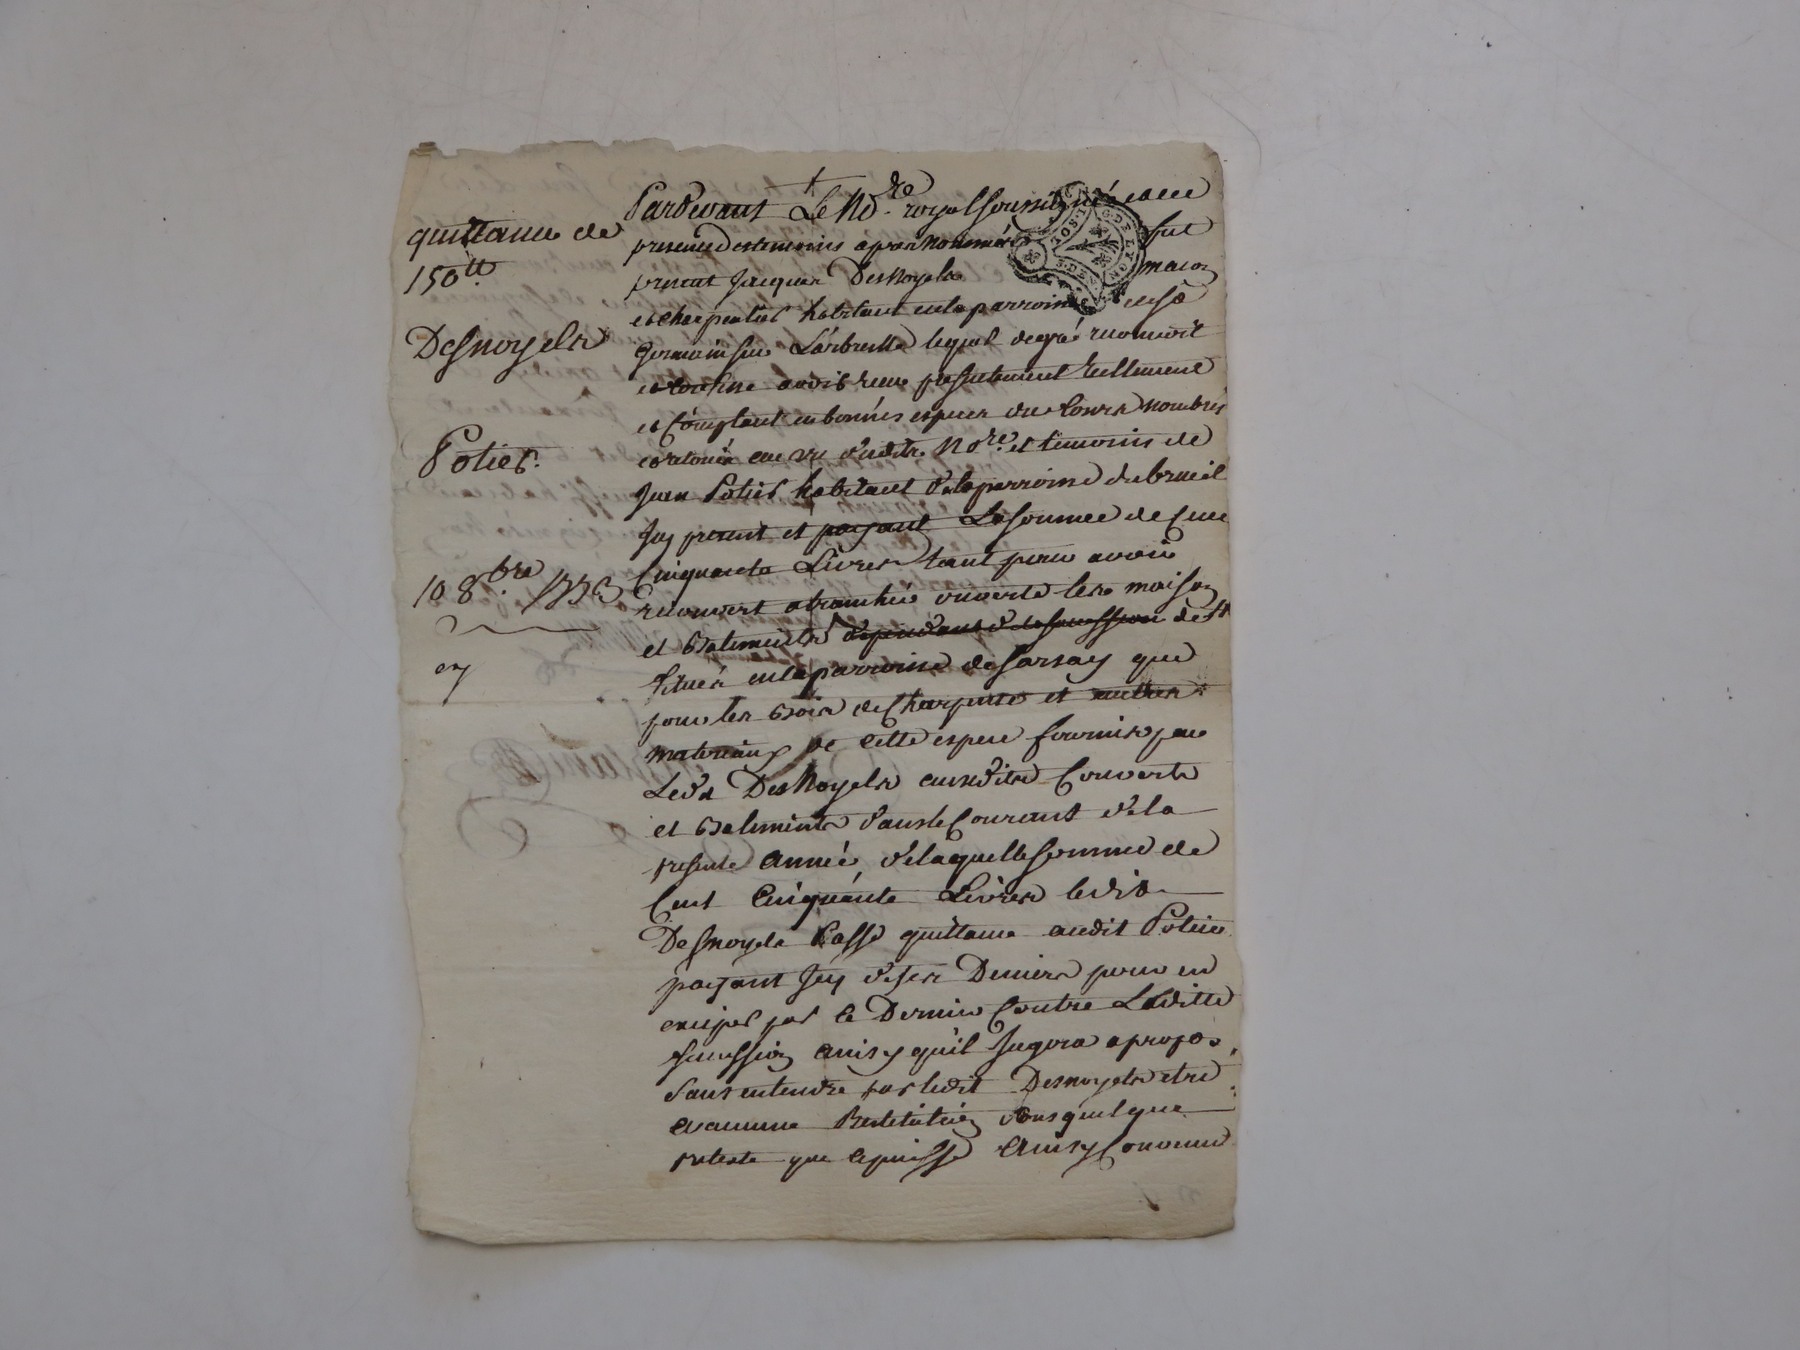 quittance de
150tt
Desnoyels
Potier.
10 8.bre 1773
Pardevant Le No.re royal soussigné et en
presence des temoins apres nommés fut
present Jacques DesNoyels macon
et charpentier habitant en la parroisse de st
Germain sur L'arbresle lequel de gré reconnoit
et confesse avoir receu presentement reellement
et Comptant en bonnes especes du Cours nombrés
et retirés au vu dudit No.re et temoins de
Jean Potier habitant de la parroisse du breuil
Icy present et payant La somme de Cent
Cinquante Livres tant pour avoir
recouvert a tranchée ouverte les maison
et Batiments dependant de la succession de
situés en la parroisse de Sarsay que
pour les Bois de Charpente et autres
materiaux de cette espece fournis par
Led. DesNoyels auxdits Couverts
et Batiments dans le Courant de la
presente année, de laquelle somme de
Cent Cinquante Livres ledit
Desnoyels Passe quittance audit Potier
payant Icy de ses Deniers pour en
exciper par ce Dernier Contre Laditte
succession ainsy qu'il Jugera a propos,
sans entendre par ledit Desnoyels etre
a aucune Restitution sous quelque
pretexte que ce puisse Ainsy Convenu